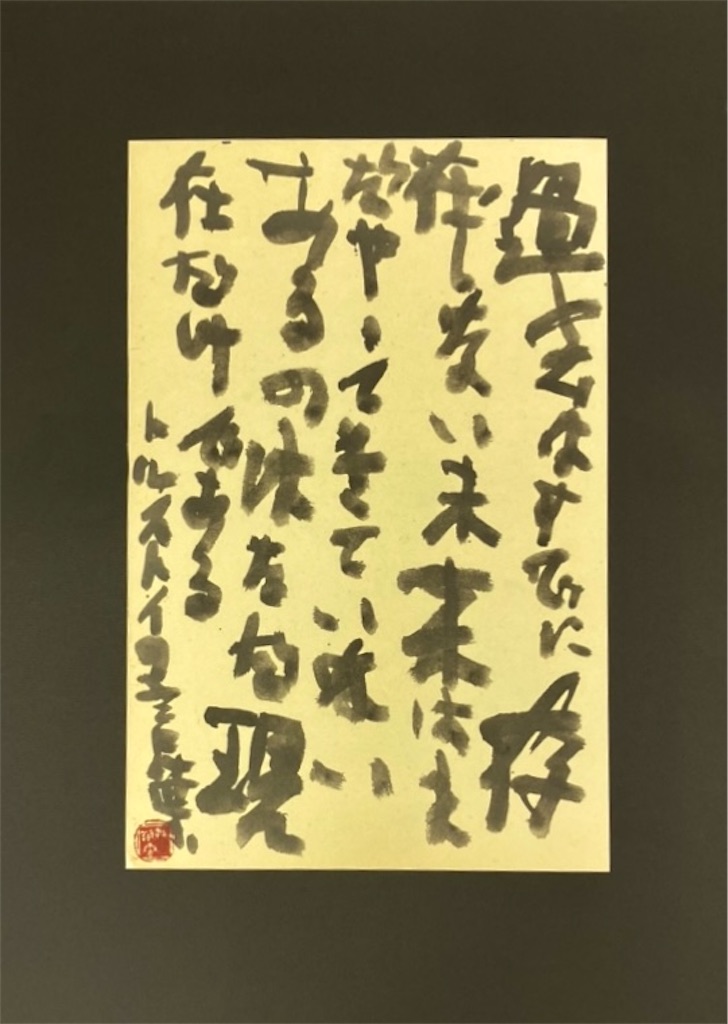 過去はすでに存
在しない未来はま
だやってきていない
あるのはただ現
在だけである
トルストイの言葉